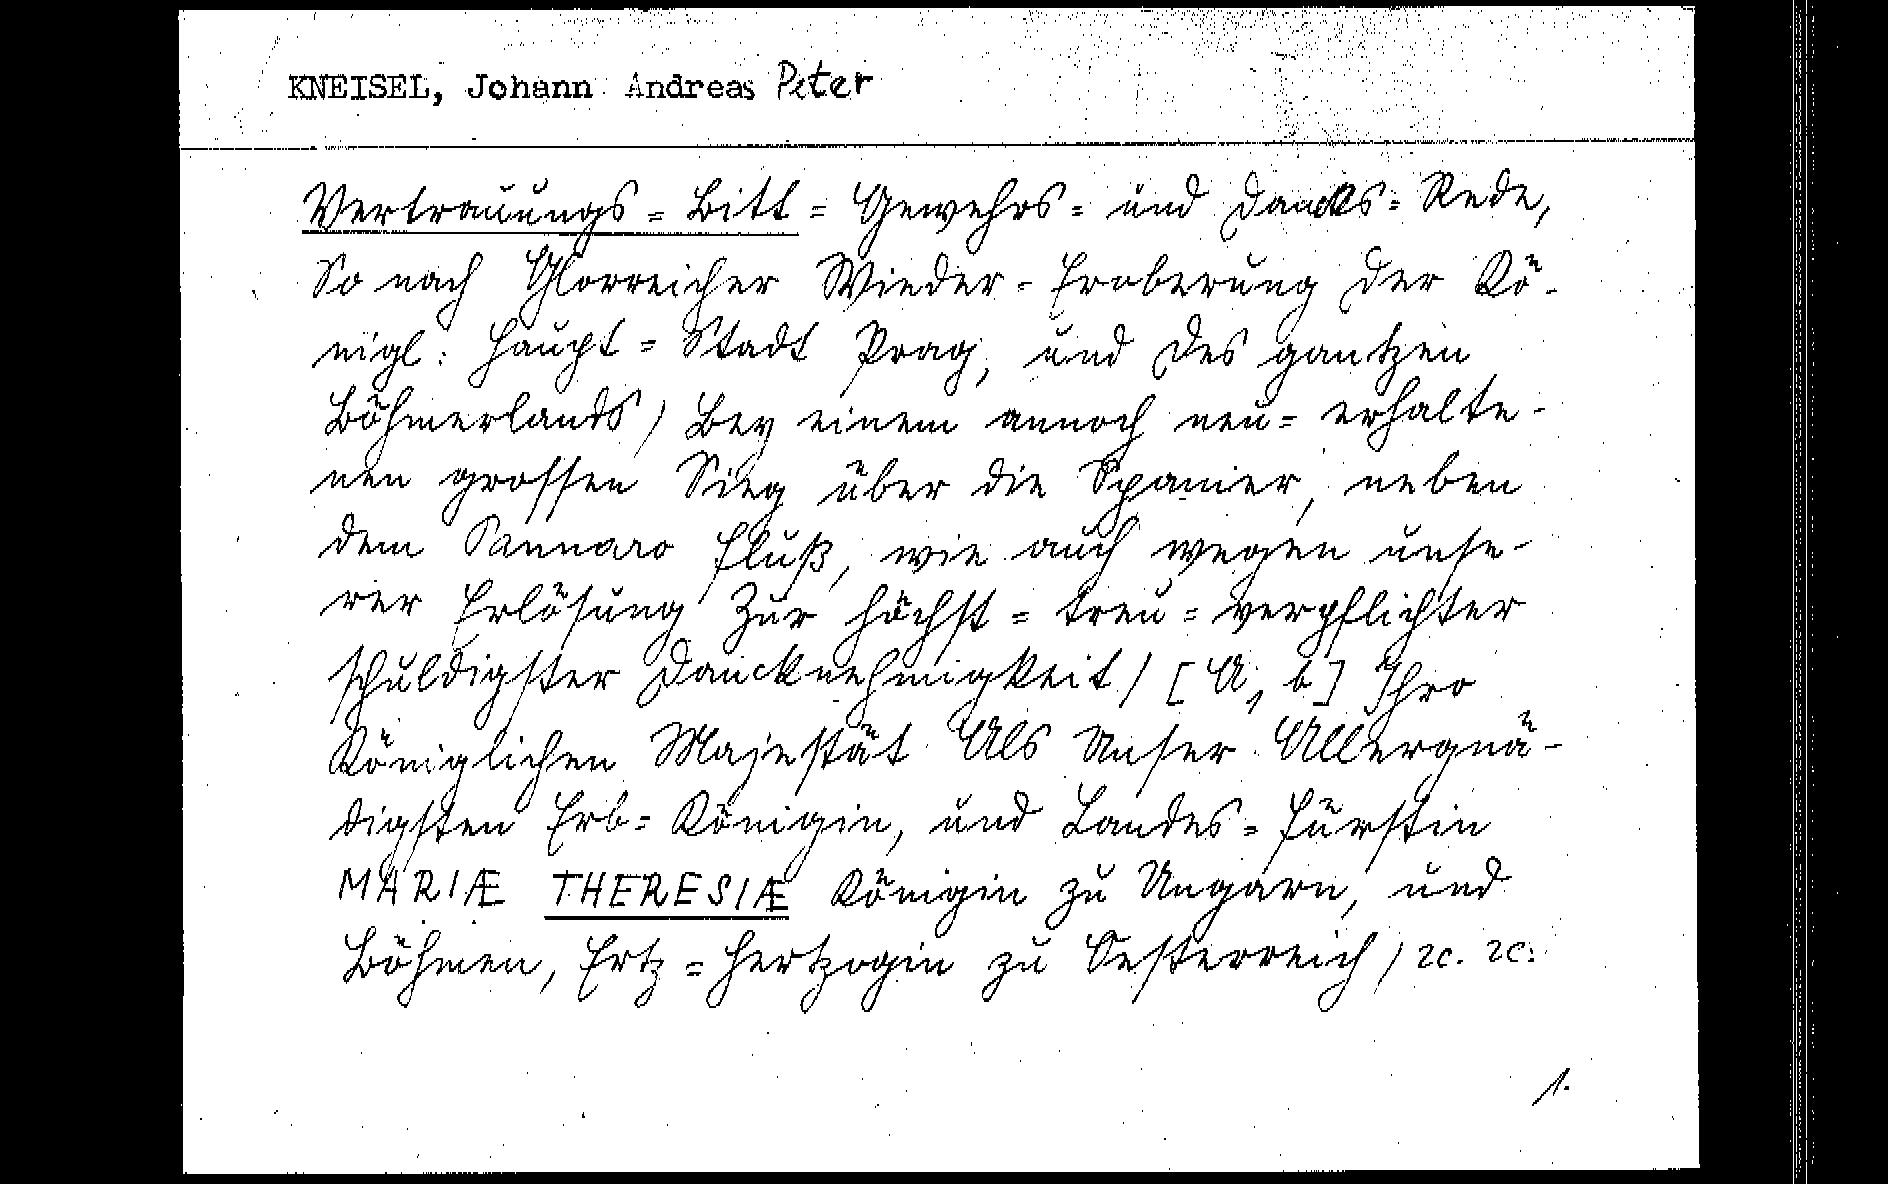 KNEISEL, Johann Andreas Peter
Vertrauungs= Bitt= Gewehrs= und Dancks= Rede,
So nach Glorreicher Wieder=Eroberung der Kö-
nigl: Haupt=Stadt Prag, und des gantzen
Böhmerlands/ Bey einem annoch neu=erhalte-
nen grossen Sieg über die Spanier, neben
dem Pannaro Fluß, wie auch wegen unse-
rer Erlösung Zur höchst=treu=verpflichter
schuldigster Dancknehmigkeit/ [A, b] Ihro
Königlichen Majestät Als Unser Allergnä-
digsten Erb=Königin, und Landes=Fürstin
MARIÆ THERESIÆ Königin zu Ungarn, und
Böhmen, Ertz=Hertzogin zu Oesterreich/ ꝛc. ꝛc:
1.